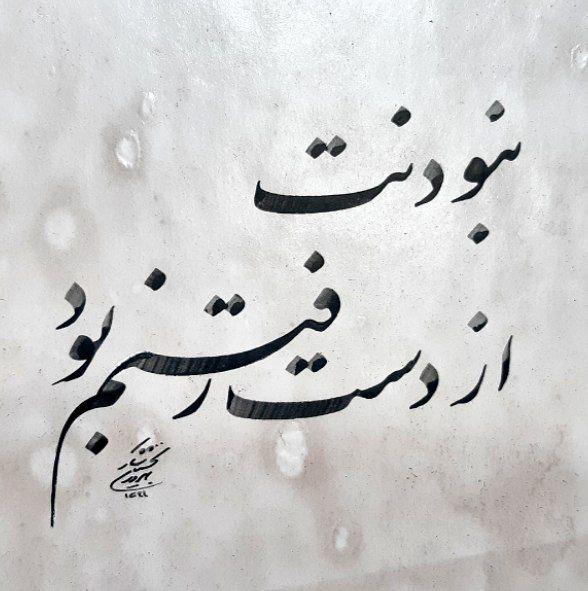 نبودنت
از دست رفتنم بود